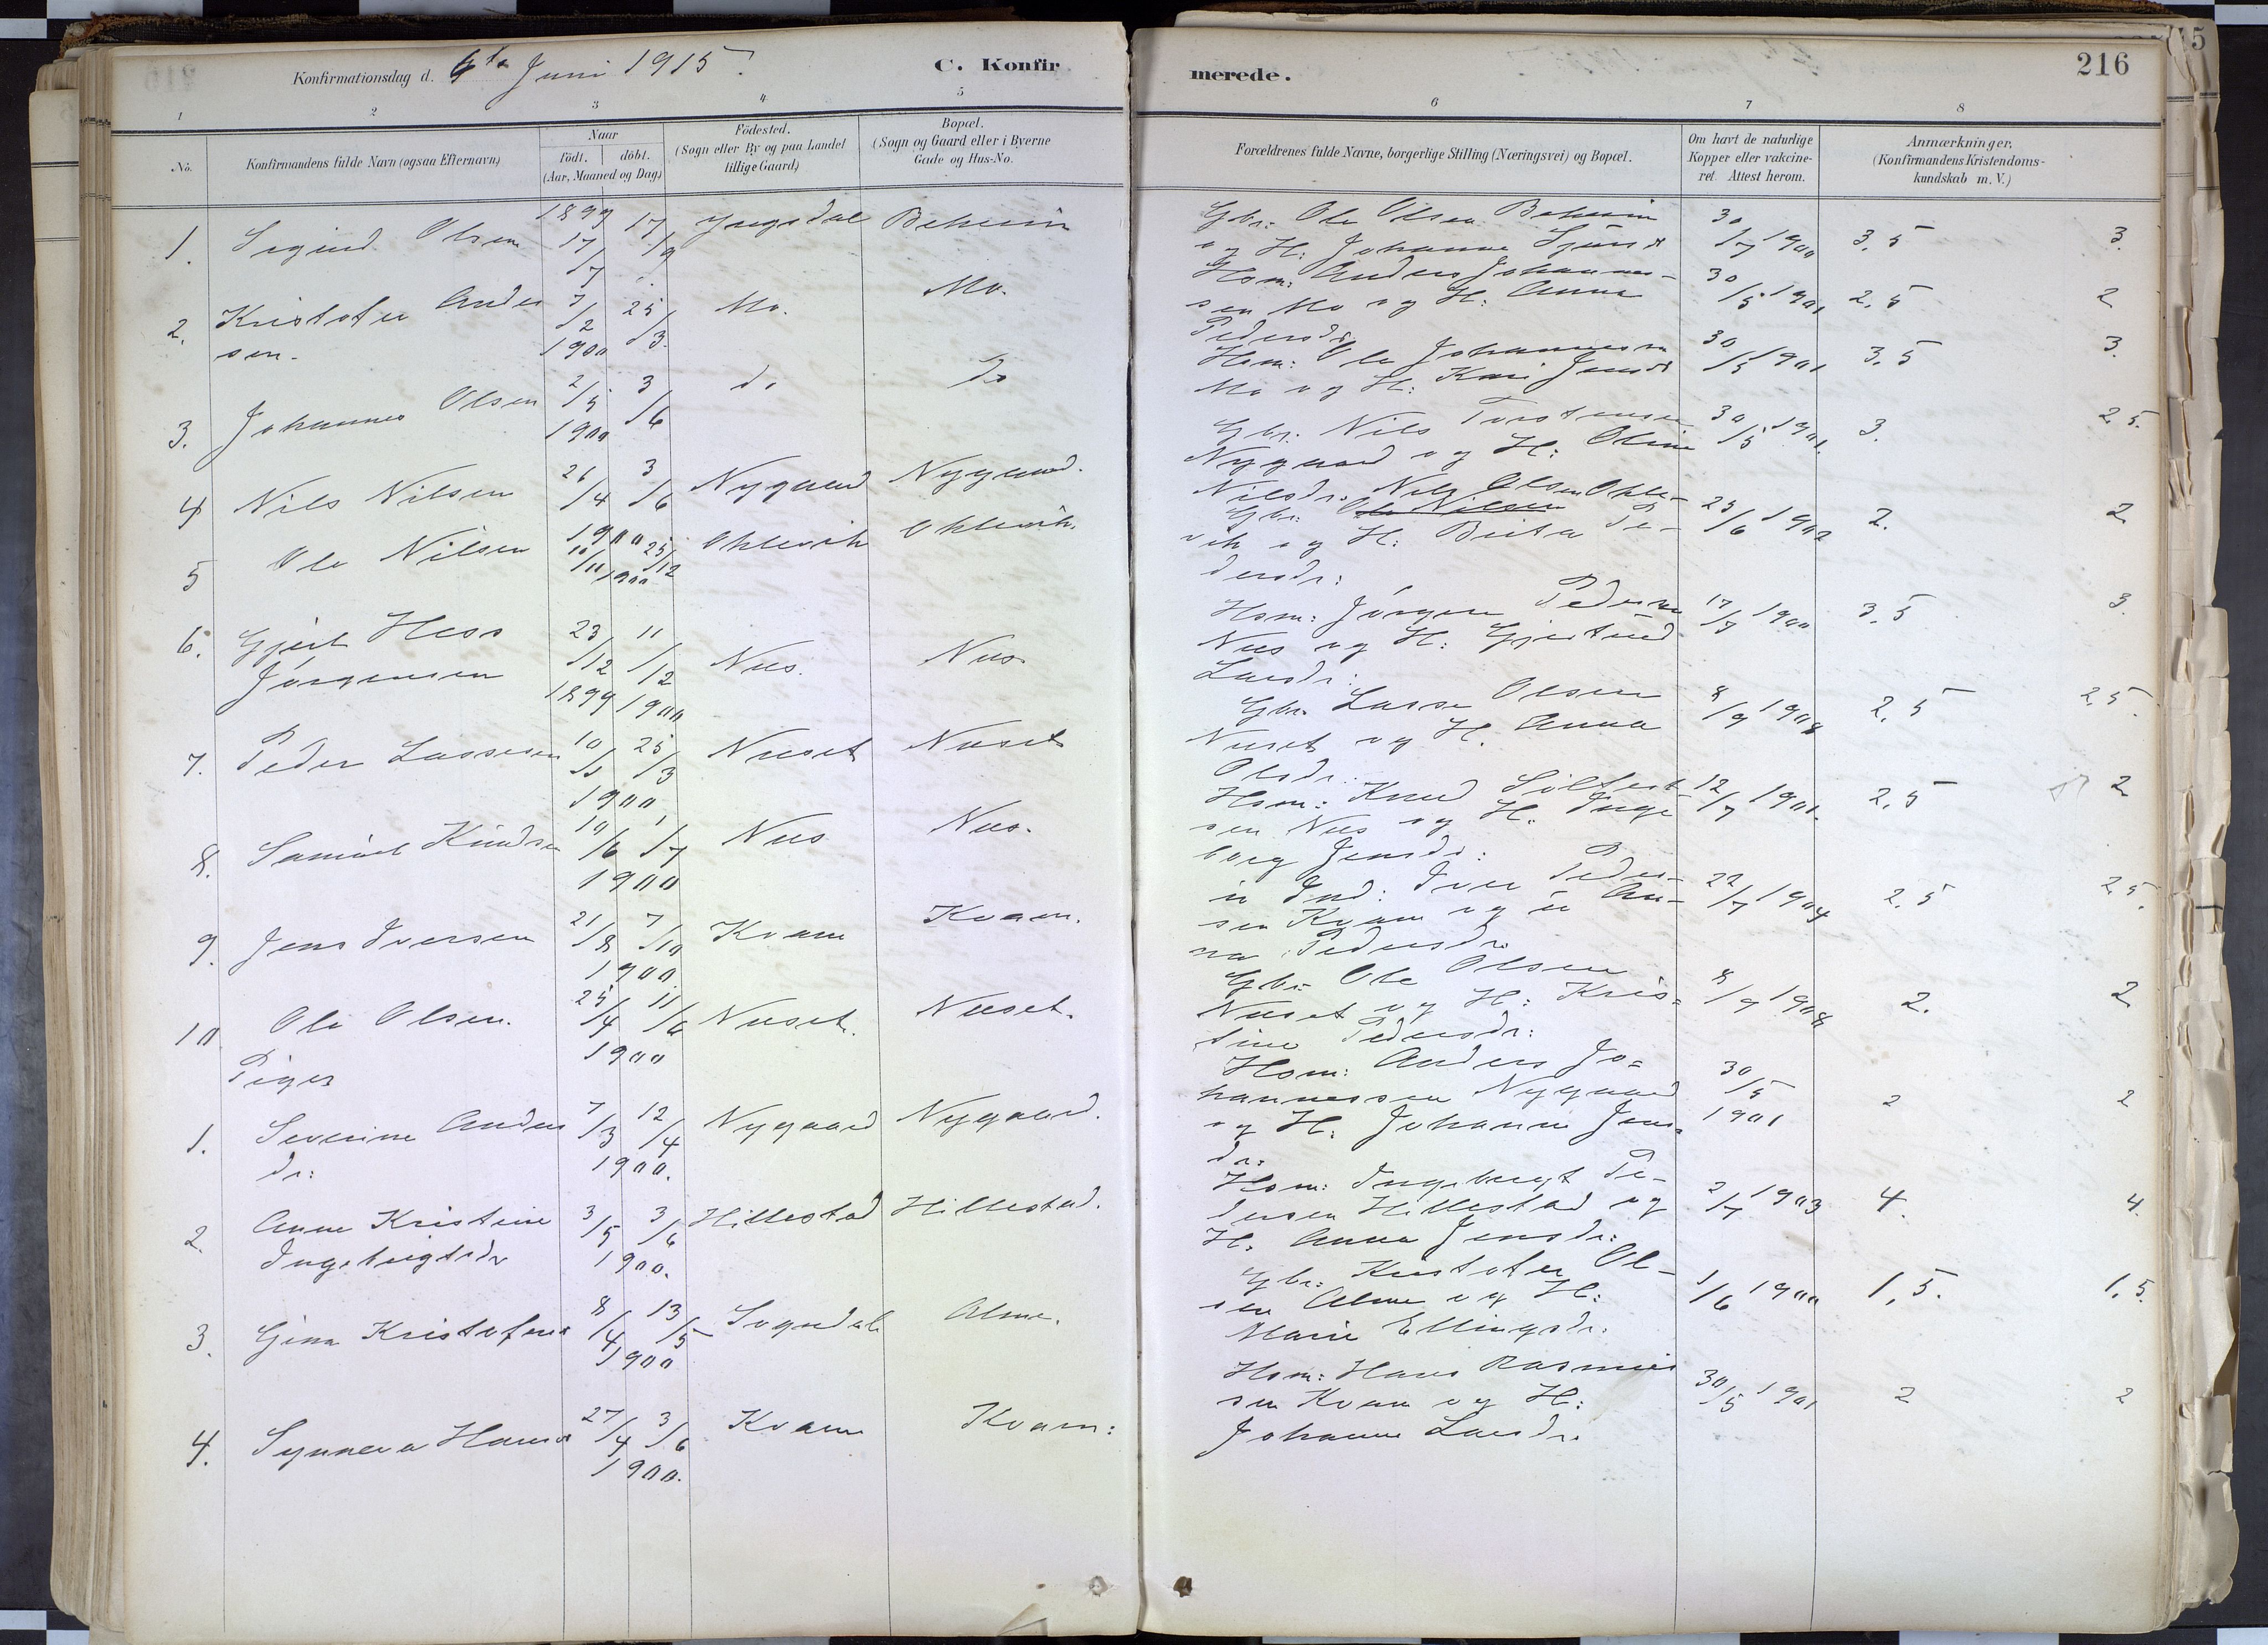 Konfirmationsdag d. 6te Juni 1915.
C. Konfirmerede.
216
1 2 3 4 5 6 7 8
No.
Konfirmandens fulde Navn (ogsaa Efternavn)
Naar
födt. döbt.
(Aar, Maaned og Dag)
Födested.
(Sogn eller By og paa Landet
tillige Gaard)
Bopæl.
(Sogn og Gaard eller i Byerne
Gade og Hus-No.
Forældrenes fulde Navne, borgerlige Stilling (Næringsvei) og Bopæl.
Om havt de naturlige
Kopper eller vakcine-
ret. Attest herom.
Anmærkninger,
(Konfirmandens Kristendoms-
kundskab m. V.)
1. Olsen 1899 17/7 17/9
Gbr. Ole Olsen
og H: Johanne 30/7 1900 3.5 3.
2. Kristofer Ander
sen. 7/2 1900 25/3 Mo. Mo.
Hsm: Anders Johannes-
sen Mo og H: Anna
Pedersdr. 30/5 1901 2.5 2
3. Johannes Olsen 2/5 1900 3/6 do do
Hsm: Ole Johannessen
Mo og H: Kari Jensdr 30/5 1901 3.5 3.
4 Nils Nilsen 26/4 3/6 1900 Nygaard Nygaard.
Gbr: Nils Torstensen
Nygaard og H: Oline
Nilsdr. 30/5 1901. 3. 2.5.
5 Ole Nilsen 10/11 25/12 1900 Oklevik Oklevik.
Nils Olsen Okle-
Gbr: Ole Nilsen
vik og H: Brita Pe-
dersdr: 25/6 1902 2. 2
6. Gjert Hess
Jørgensen 23/12 1899 11/2 1900 Nes. Nes
Hsm: Jørgen Pedersen
Nes og H: Gjertrud
Larsdr: 17/7 1900 3.5 3.
7. Peder Lassesen 10/1 25/3 1900 Neset Neset
Gbr. Lasse Olsen
Neset og H. Anna
Olsdr. 8/9 1908 2.5 2.5.
8. Samuel Knudsen 10/6 1/7 1900 Nes Nes.
Hsm: Knud
sen Nes og H. Inge
borg Jensdr: 12/7 1901. 2.5 2
9. Jens Iversen 21/8 7/10 1900. Kvam Kvam.
Ind: Iver Peder-
sen Kvam og An-
na Pedersdr. 22/7 1904 2.5 2.5.
10 Ole Olsen. 25/4 11/6 1900 Neset. Neset.
Gbr. Ole Olsen
Neset og H: Kris-
tine Pedersdr: 8/9 1908 2. 2
Piger
1. Severine Anders
dr: 7/3 12/4 1900. Nygaard Nygaard.
Hsm: Anders Jo-
hannessen Nygaard
og H. Johanne Jens-
dr: 30/5 1901 2 2
2. Anne Kristine
Ingebrigtsdr 3/5 3/6 1900. Hillestad Hillestad.
Hsm: Ingebrigt Pe-
dersen Hillestad og
H. Anna Jensdr: 2/7 1903 4. 4.
3. Gina Kristofersd 8/4 13/5 1900 Sogndal Alme.
Gbr: Kristofer Ol-
sen Alme og H:
Marie Ellingsdr. 1/6 1900 1,5. 1,5.
4. Synneva Hansd 27/4 3/6 1900. Kvam Kvam:
Hsm: Hans Rasmus
sen Kvam og H:
Johanne Larsdr. 30/5 1901 2 2